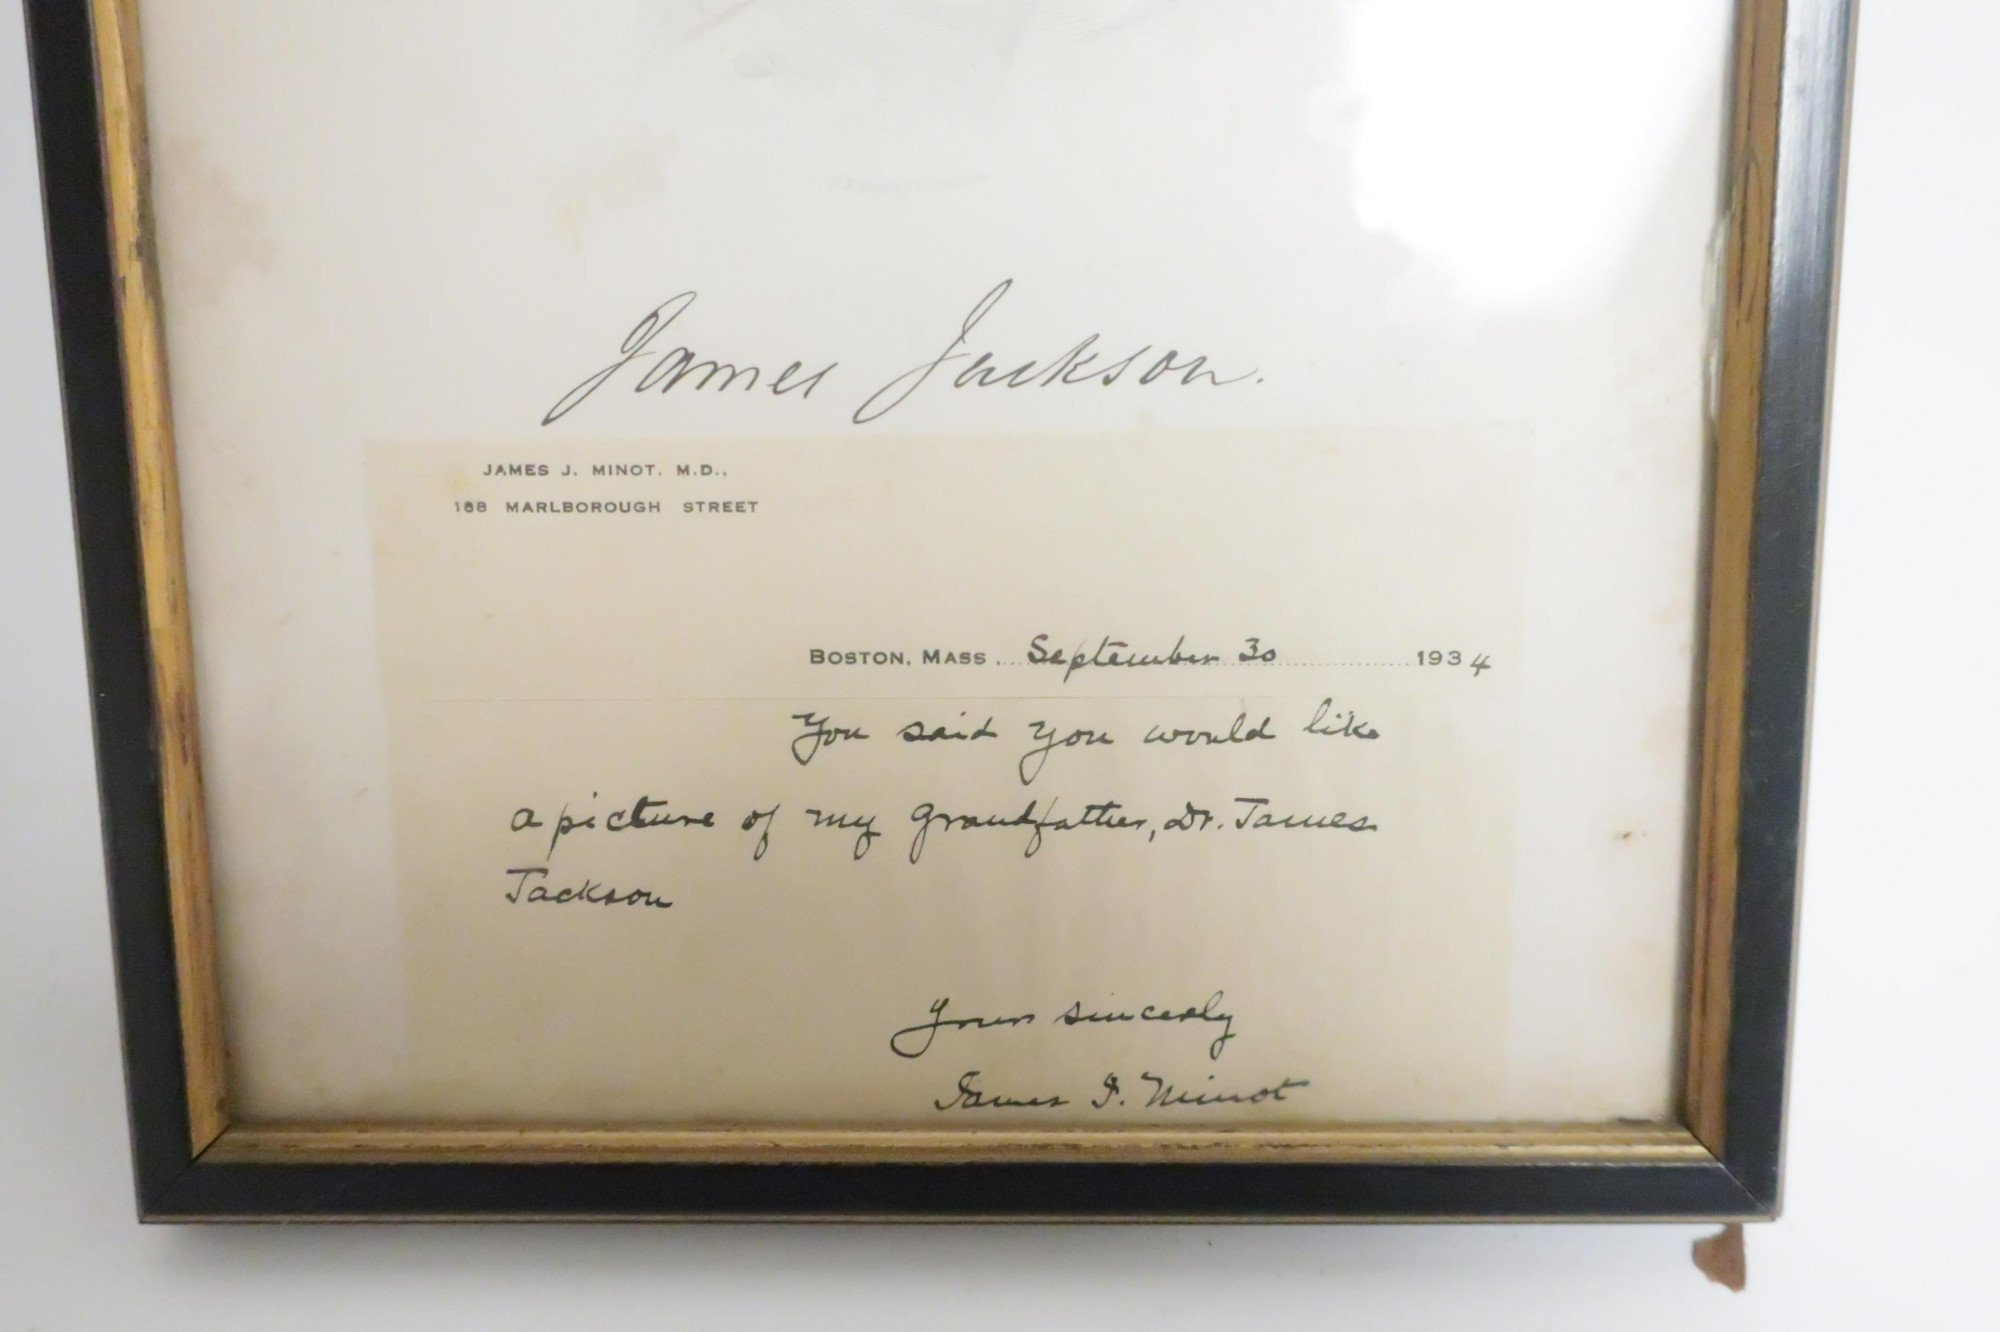 James Jackson.
JAMES J. MINOT. M.D.,
188 MARLBOROUGH STREET
BOSTON, MASS. September 30 1934
You said you would like
a picture of my grandfather, Dr. James
Jackson
Yours sincerely
James J. Minot